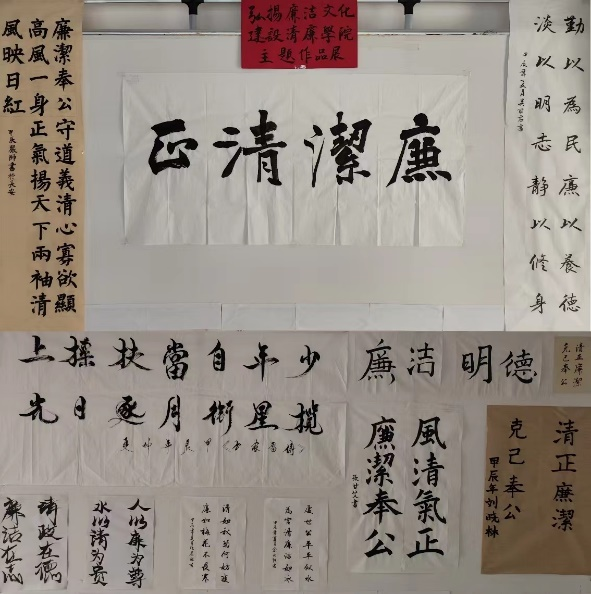 弘揚廉洁文化
建設清廉學院
主題作品展
廉潔奉公守道義清心寡欲顯
高風一身正氣揚天下兩袖清
風映日紅
廉潔清正
勤以為民廉以養德
淡以明志靜以修身
少年自當扶搖上
攬星衔月逐日光
德明洁廉
清正廉潔
克己奉公
風清氣正
廉潔奉公
清正廉潔
克己奉公
人以廉为尊
水以清为贵
清政在德
廉洁在志